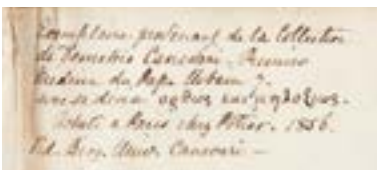 Exemplaire provenant de la Collection
de Demetrio Canevari, Premier
Médecin du Pape Urbain 7.
avec sa devise ορθως και μη λοξιως.
Acheté a Paris chez Potier. 1856.
Vid. Biog. Univ. Canevari —